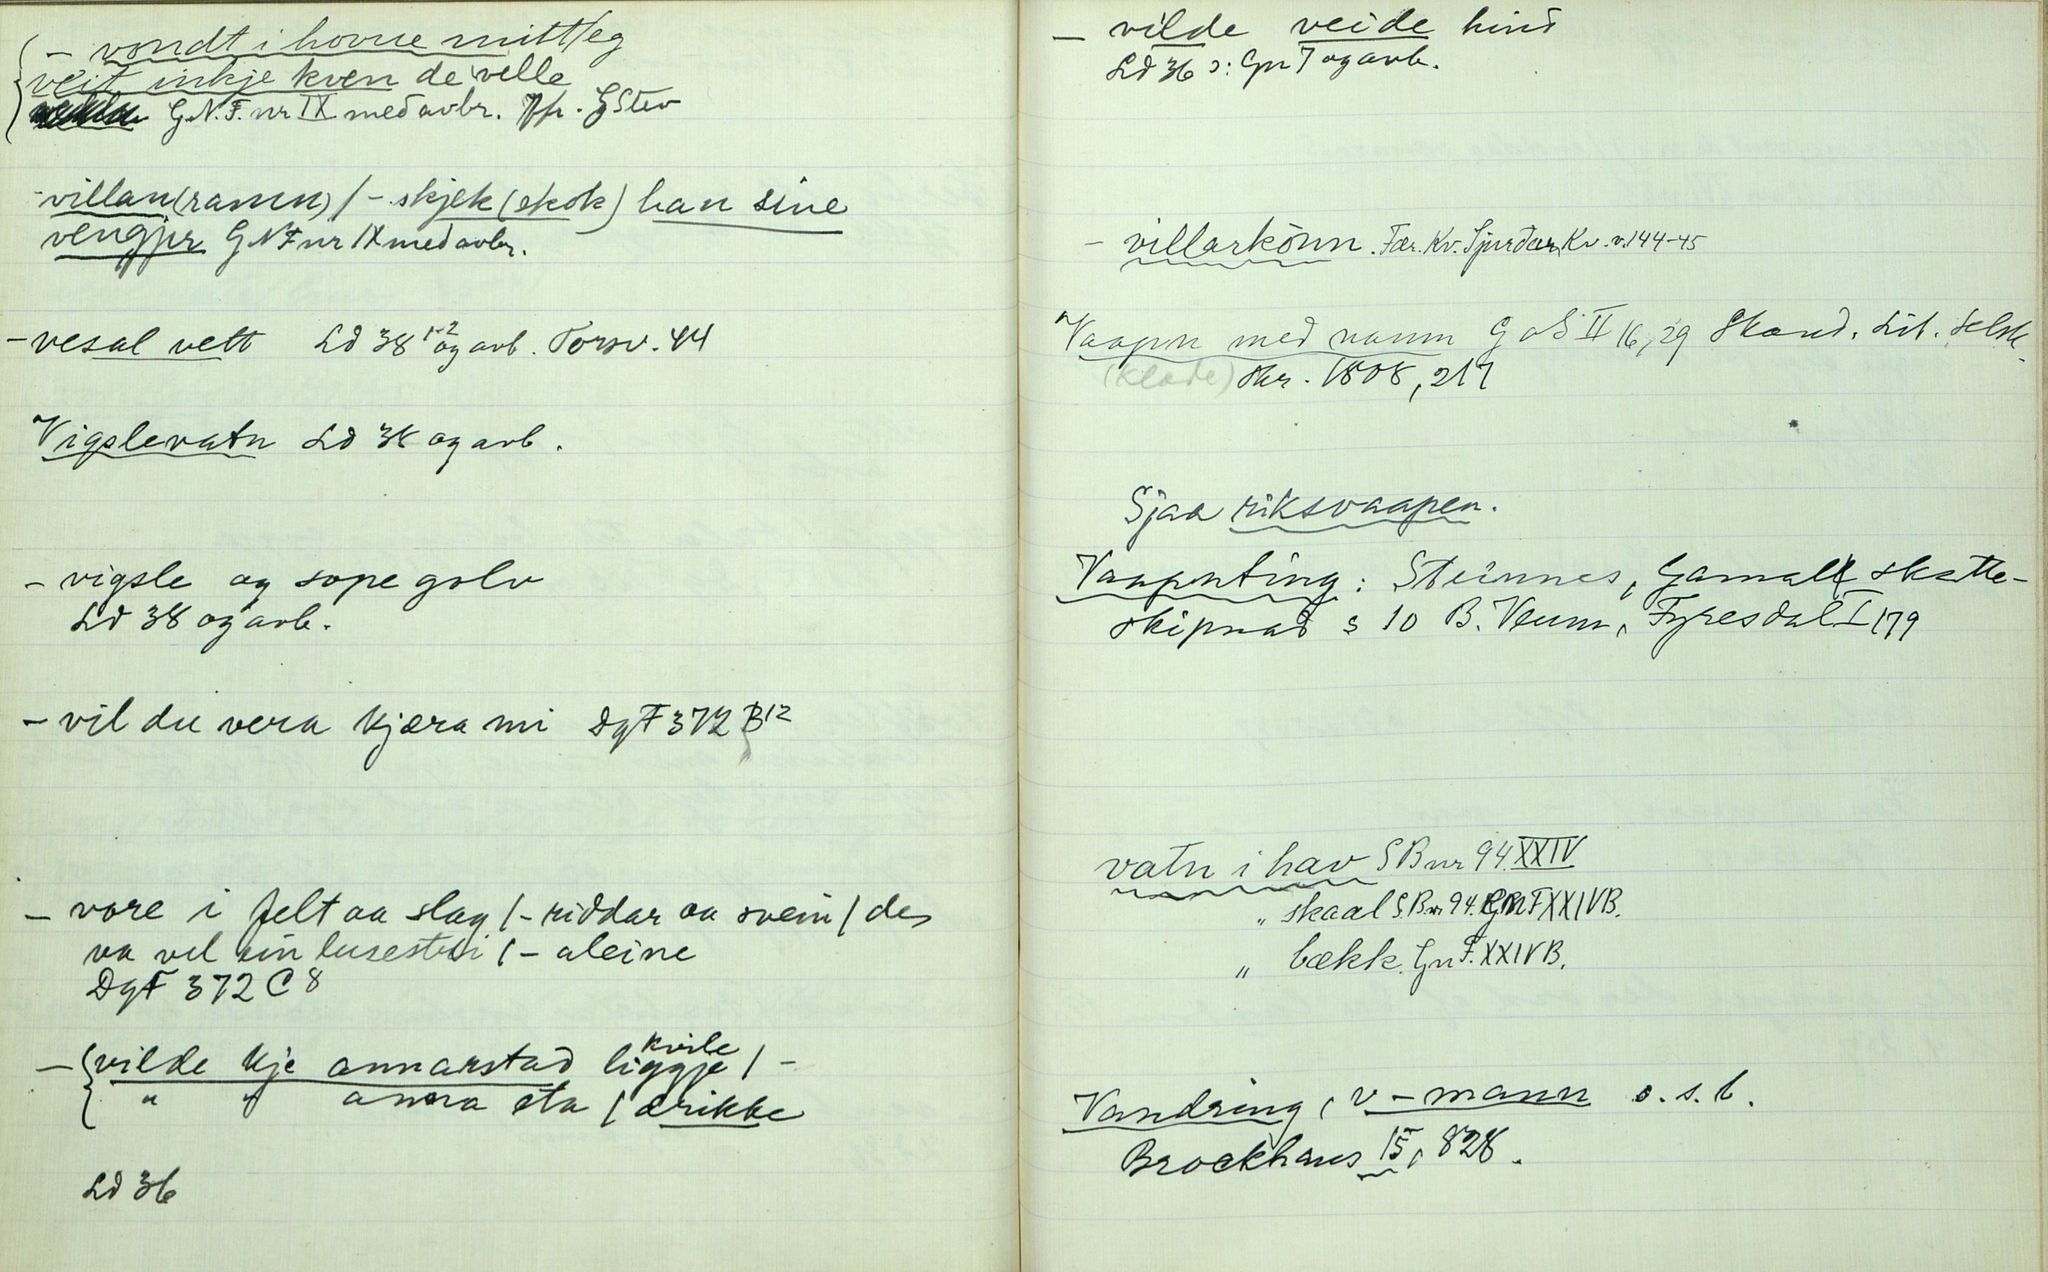 - vondt i hovue mitt/eg
veit inkje kven de velle
G.N.F. nr IX med avbr. Jfr. G Stev
- villan (ramn) / - skjek (skok) han sine
vengjir G N F nr IX med avbr.
- vesal vett Ld 38 1-2 og avb. Torsv. 44
Vigslevatn Ld 38 og avb.
- vigsle og sope golv
Ld 38 og avb.
- vil du vera kjæra mi DgF 372 B12
- vore i felt aa slag / - riddar aa svein / de
va vel ein / - aleine
DgF 372 C 8
- vilde kje annarstad liggje / -
kvile
" " anna eta / drikke
Ld 36
- vilde veide hind
Ld 36 ɔ: Gn 7 og avb.
- villarkonn. Fær. Kv. Sjurdar Kv. v. 144-45
Vaapn med namn G o S II 16, 29 Skand. Lit. Selsk.
(Klade) Skr. 1808, 217
Sjaa riksvaapen.
Vaapnting: Steinnes, Gamal skatte-
skipnad s 10 B. Veum, Fyresdal I 179
vatn i hav S B nr 94. XXIV
" skaal S. B. nr 94. GNF XXIV B.
" bækk. Gn F. XXIV B.
Vandring, v - mann o. s. b.
Brockhaus 15, 828.